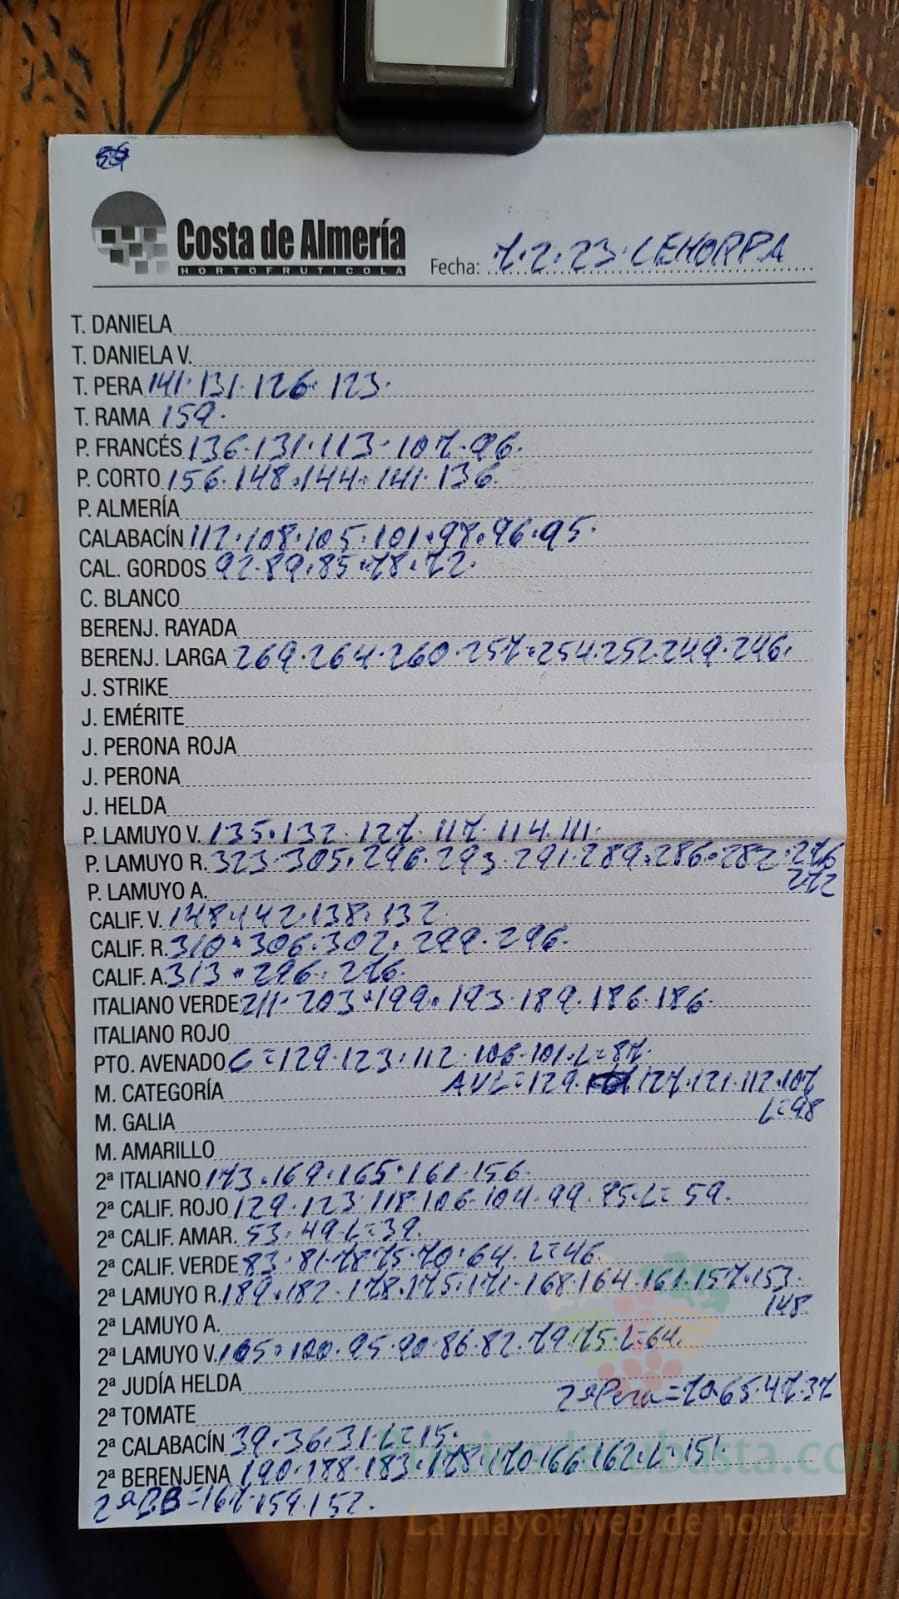 Costa de Almería
HORTOFRUTICOLA
Fecha: 7.2.23. CEHORPA
T. DANIELA
T. DANIELA V.
T. PERA 141. 131. 126. 123.
T. RAMA 159.
P. FRANCÉS 136.131.113.107.96.
P. CORTO 156.148.144.141.136.
P. ALMERÍA
CALABACÍN 112.108.105.101.98.96.95.
CAL. GORDOS 92.89.85.78.72.
C. BLANCO
BERENJ. RAYADA
BERENJ. LARGA 269.264.260.257.254.252.249.246.
J. STRIKE
J. EMÉRITE
J. PERONA ROJA
J. PERONA
J. HELDA
P. LAMUYO V. 135.132.127.117.114.111.
P. LAMUYO R. 323.305.296.293.291.289.286.282.276
272
P. LAMUYO A.
CALIF. V. 148.142.138.132.
CALIF. R. 310.306.302.299.296.
CALIF. A. 313.296.276.
ITALIANO VERDE 211.203.199.193.189.186.186.
ITALIANO ROJO
PTO. AVENADO C=129.123.112.106.101.L=87.
M. CATEGORÍA AVL=129. 127.121.112.107
L=98
M. GALIA
M. AMARILLO
2ª ITALIANO 173.169.165.161.156.
2ª CALIF. ROJO 129.123.118.106.104.99.95.L=59.
2ª CALIF. AMAR. 53.49.L=39.
2ª CALIF. VERDE 83.81.78.75.70.64.L=46.
2ª LAMUYO R. 189.182.178.175.171.168.164.161.157.153.
148
2ª LAMUYO A.
2ª LAMUYO V. 105.100.95.90.86.82.79.75.L=64.
2ª JUDÍA HELDA
2ª Pera=70.65.47.37
2ª TOMATE
2ª CALABACÍN 39.36.31.L=15.
2ª BERENJENA 190.188.183.178.170.166.162.L 151.
2ª =167.159.152.
La mayor web de hortalizas